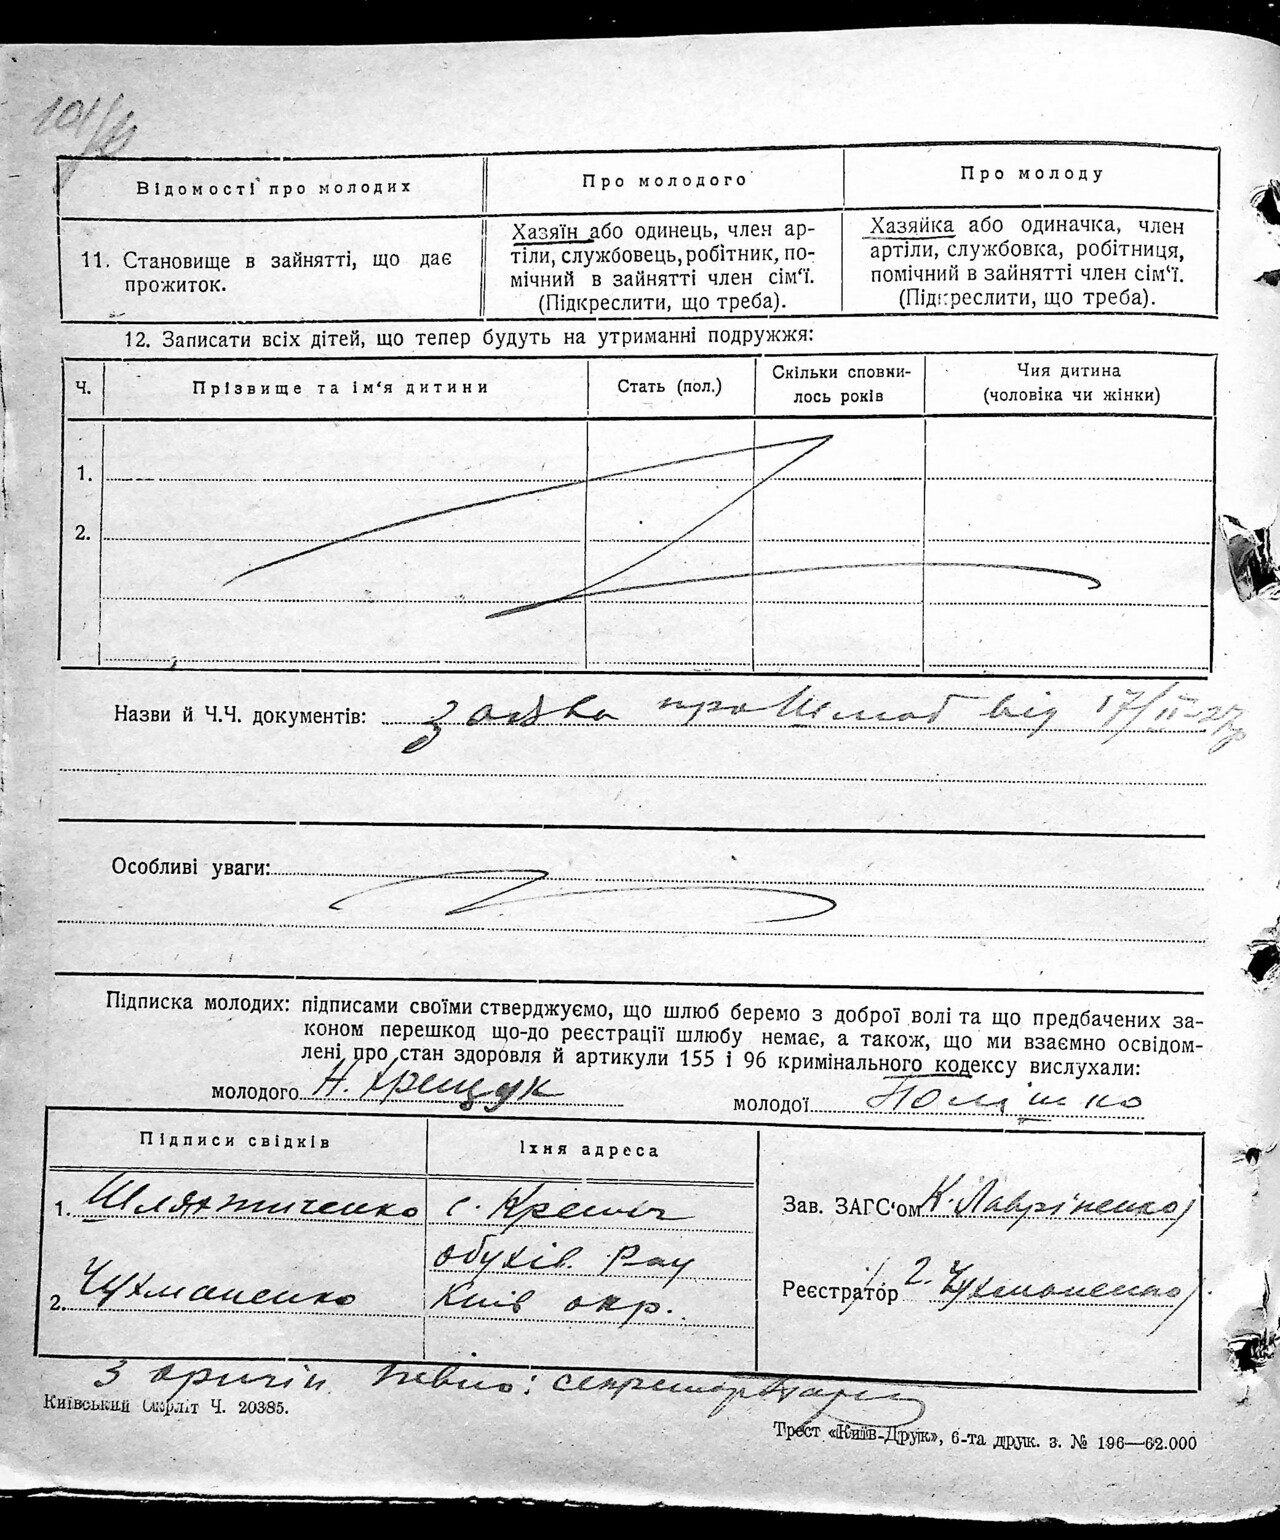 101/
Відомості про молодих
Про молодого
Про молоду
11. Становище в зайнятті, що дає
прожиток.
Хазяїн або одинець, член ар-
тіли, службовець, робітник, по-
мічний в зайнятті член сім'ї.
(Підкреслити, що треба).
Хазяйка або одиначка, член
артіли, службовка, робітниця,
помічний в зайнятті член сім'ї.
(Підкреслити, що треба).
12. Записати всіх дітей, що тепер будуть на утриманні подружжя:
Ч.
Прізвище та ім'я дитини
Стать (пол.)
Скільки сповни-
лось років
Чия дитина
(чоловіка чи жінки)
1.
2.
Назви й Ч.Ч. документів: заява про шлюб від 17/II-27р
Особливі уваги:
Підписка молодих: підписами своїми стверджуємо, що шлюб беремо з доброї волі та що предбачених за-
коном перешкод що-до реєстрації шлюбу немає, а також, що ми взаємно освідом-
лені про стан здоровля й артикули 155 і 96 кримінального кодексу вислухали:
молодого Н. Хрещук
молодої Полішко
Підписи свідків
Їхня адреса
1. Шляхтиченко
с. Креніч
обухів. Рай
2. Чухманенко
Київ окр.
Зав. ЗАГС'ом К. Лавріненко
Реєстратор 2. Чухманенко
З оригін. вевно: секретар
Київський Окрліт Ч. 20385.
Трест «Київ-Друк», 6-та друк. з. № 196—62.000